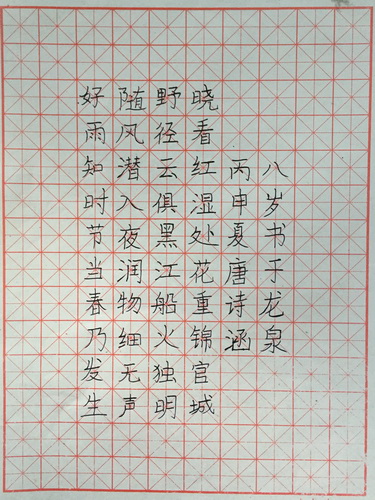 好雨知时节当春乃发生
随风潜入夜润物细无声
野径云俱黑江船火独明
晓看红湿处花重锦官城
丙申夏唐诗涵
八岁书于龙泉